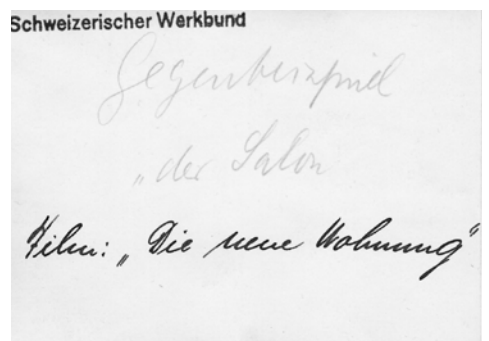 Schweizerischer Werkbund
Gegenbeispiel
„der Salon
Film: „Die neue Wohnung"